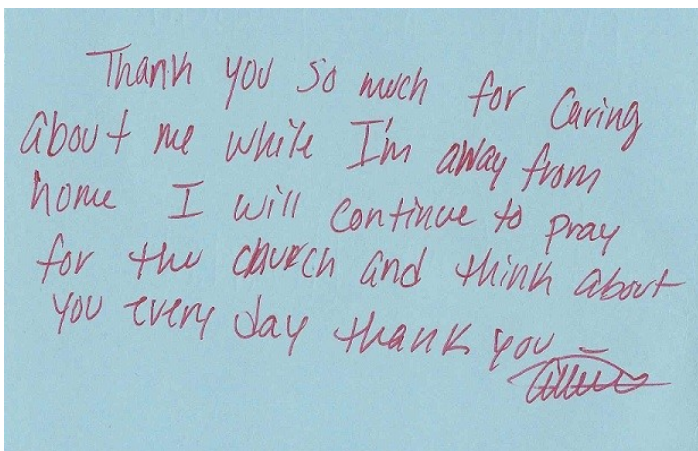 Thank you so much for Caring
about me while I'm away from
home I will continue to pray
for the church and think about
you every day thank you